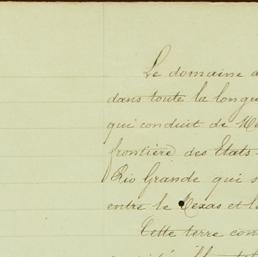 Le domaine
dans toute la longue
qui conduit de
frontière des Etats
Rio Grande qui s
entre le Texas et l
Cette terre con